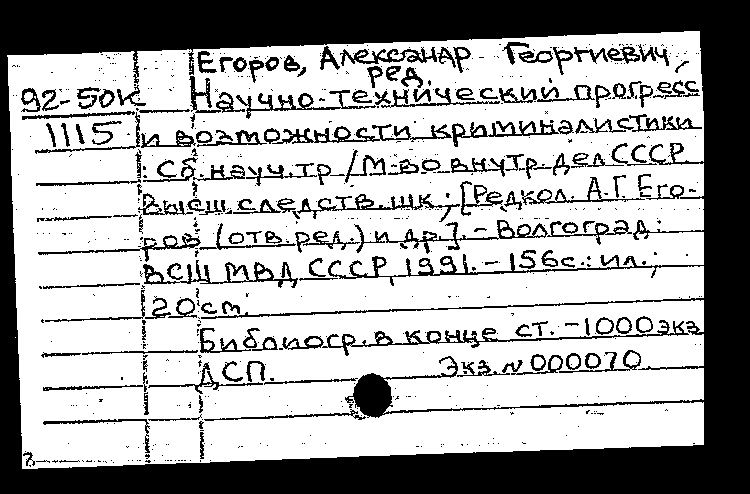 Егоров, Александр Георгиевич,
ред.
92-50к Научно-технический прогресс
1115 и возможности криминалистики
: Сб. науч. тр / М-во внутр. дел СССР.
Высш. следств. шк.; [Редкол. А.Г. Его-
ров (отв. ред.) и др.]. - Волгоград:
ВСШ МВД СССР, 1991. - 156с.: ил.;
20 см.
Библиогр. в конце ст. - 1000 экз
ДСП. Экз. N 000070.